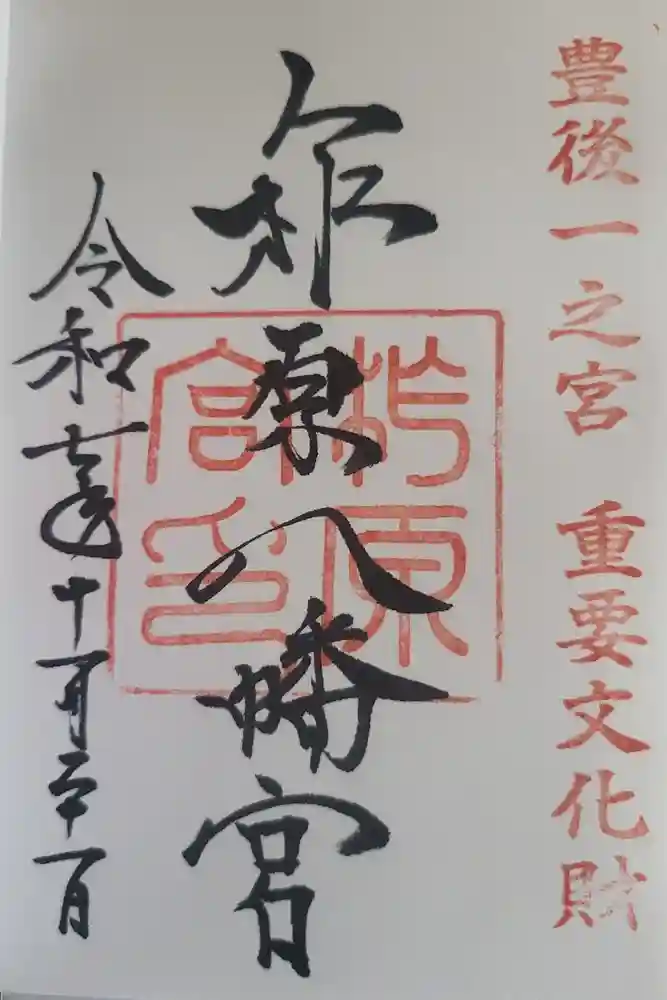 豊後一之宮 重要文化財
柞原八幡宮
柞原
宮印
令和七年十一月二十一日